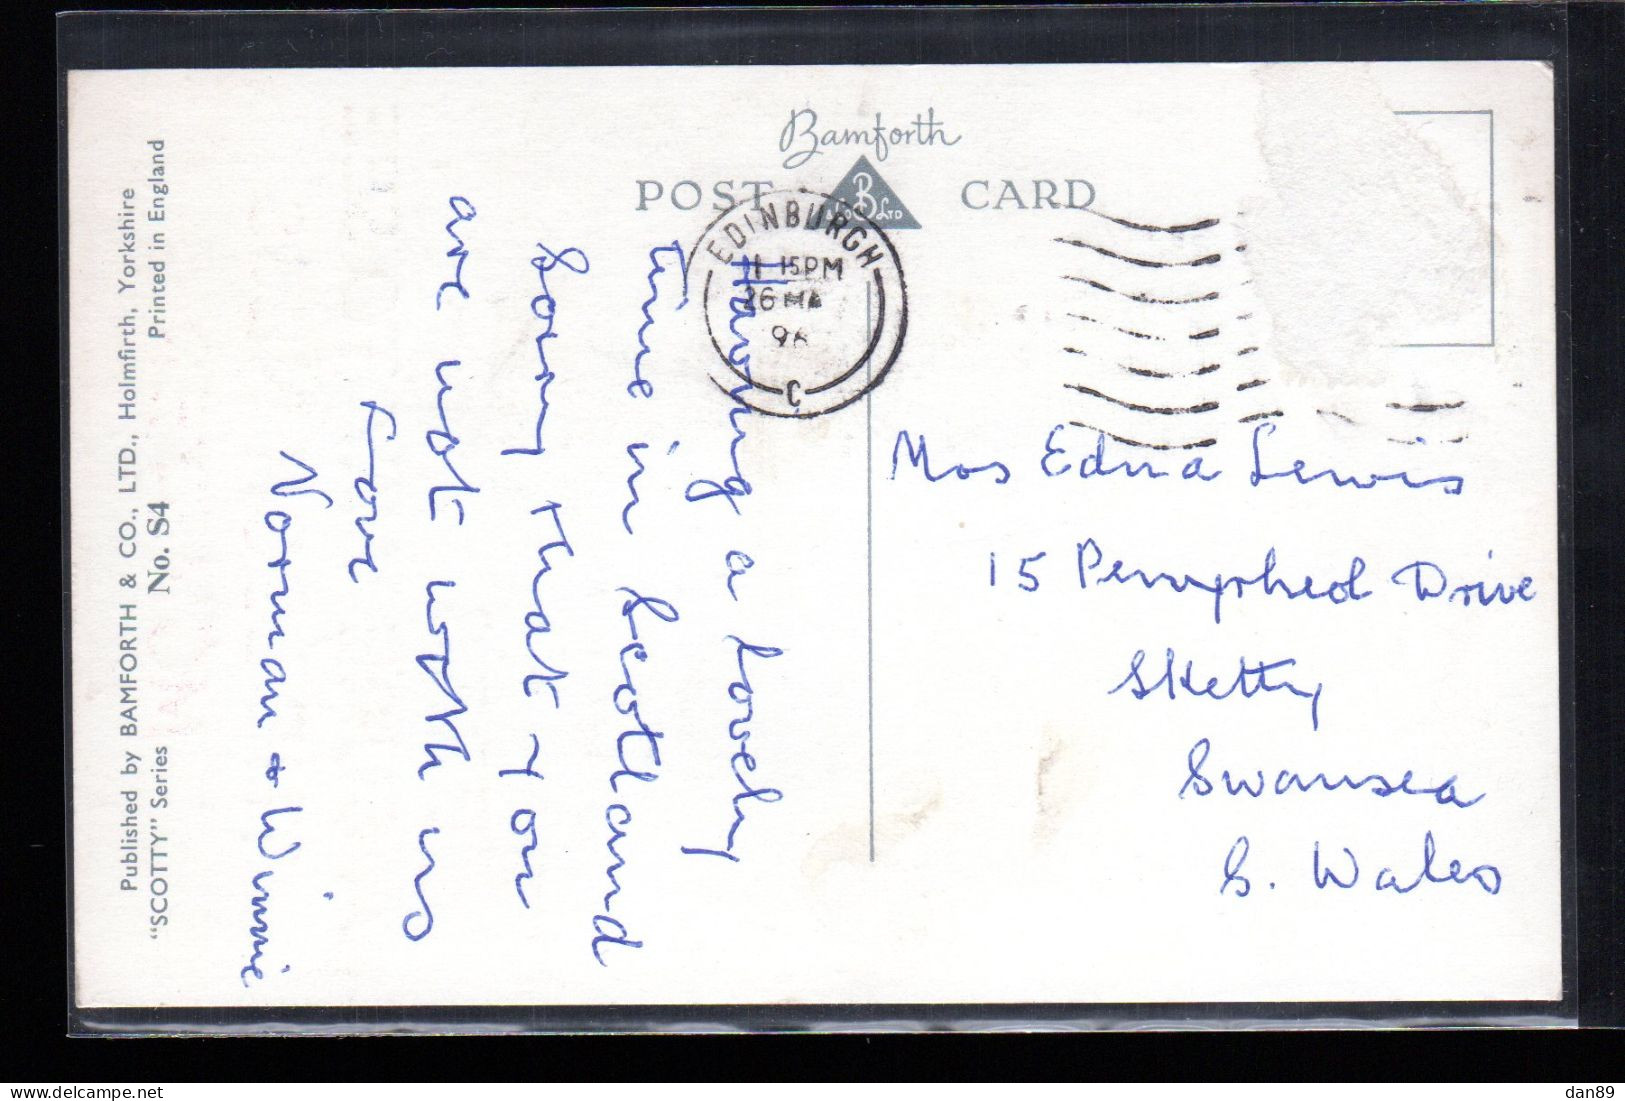 Bamforth
POST CARD
B
& Co LTD
EDINBURGH
15 PM
26
C
Having a lovely
time in Scotland
Sorry that you
are not with us
Love
Norman & Winnie
Mrs Edna Lewis
15 Drive
Sketty
Swansea
S. Wales
Published by BAMFORTH & CO., LTD., Holmfirth, Yorkshire
"SCOTTY" Series No. S4 Printed in England
dan89